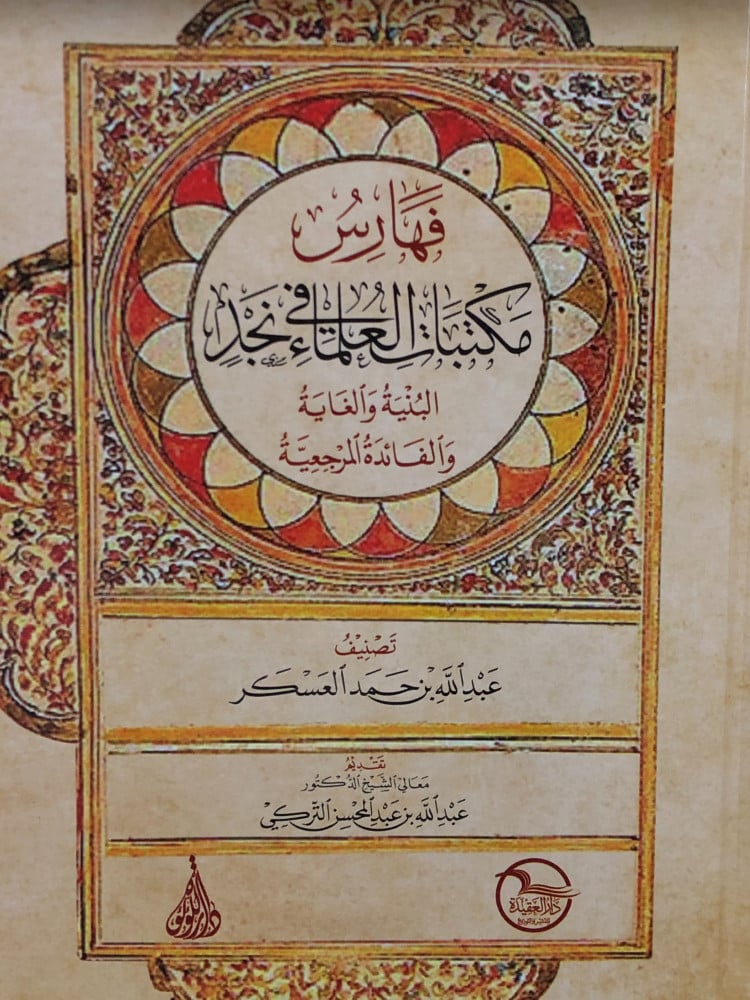 فَهَارِسُ
مَكتَبَاتِ العُلمَاءِ في نَجَدٍ
البُنْيَةُ وَالغَايَةُ
وَالفَائِدَةُ المَرْجِعِيَّةُ
تَصْنِيفُ
عَبْدِ اللَّهِ بْنِ حَمَدِ العَسكَرِ
تَقْدِيمُ
مَعَالِي الشَّيْخِ الدُّكتُور
عَبْدِ اللَّهِ بْنِ عَبْدِ المُحْسِنِ التُّركِي
دَارُ العَقِيدَة
للنشر والتوزيع
دار اللؤلؤة